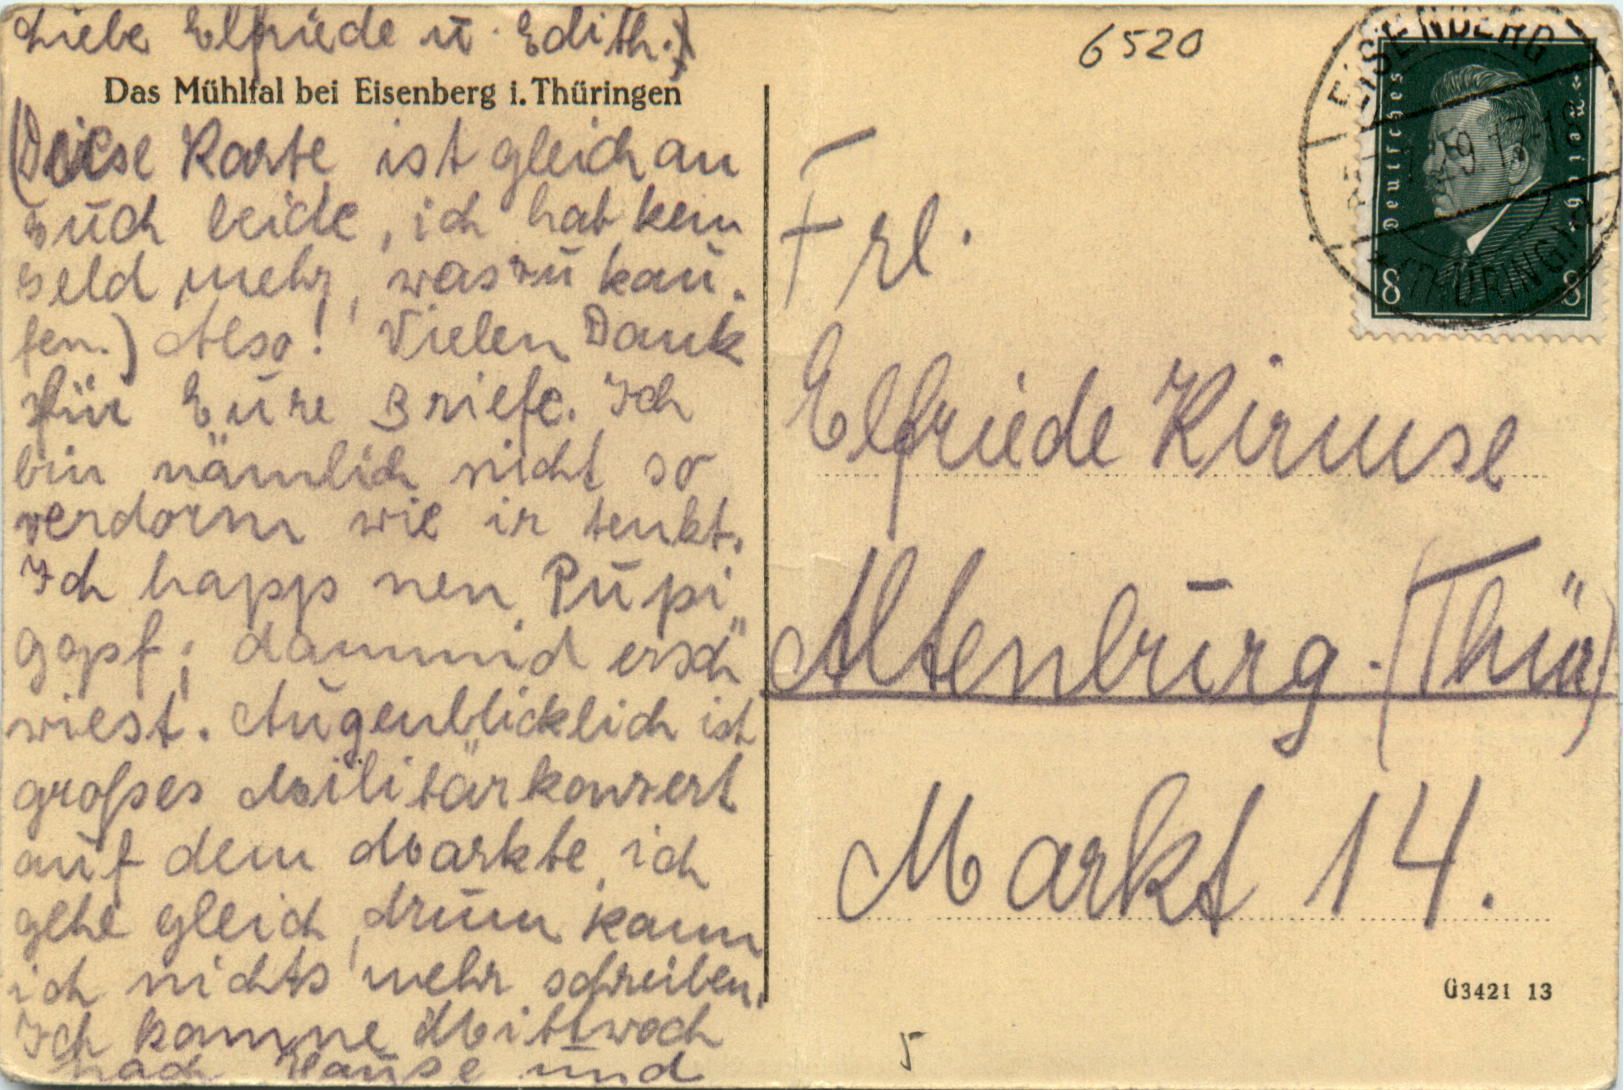 Liebe Elfriede u. Edith.)
Das Mühltal bei Eisenberg i. Thüringen
(Diese Karte ist gleich an
Euch beide, ich hab kein
Geld mehr, was zu kau-
fen.) Also! Vielen Dank
für Eure Briefe. Ich
bin nämlich nicht so
verdorm wie ir tenkt.
Ich happ nen Pupi
gopf; dammid ersch
wiest. Augenblicklich ist
großes Militärkonzert
auf dem Markte, ich
gehe gleich, drum kann
ich nichts mehr schreiben.
Ich komme Mittwoch
nach Hause und
6520
EISENBERG
29 17-18
(THÜRINGEN)
Deutsches Reich
8 8
Frl.
Elfriede Kirmse
Altenburg. (Thür.)
Markt 14.
G3421 13
5